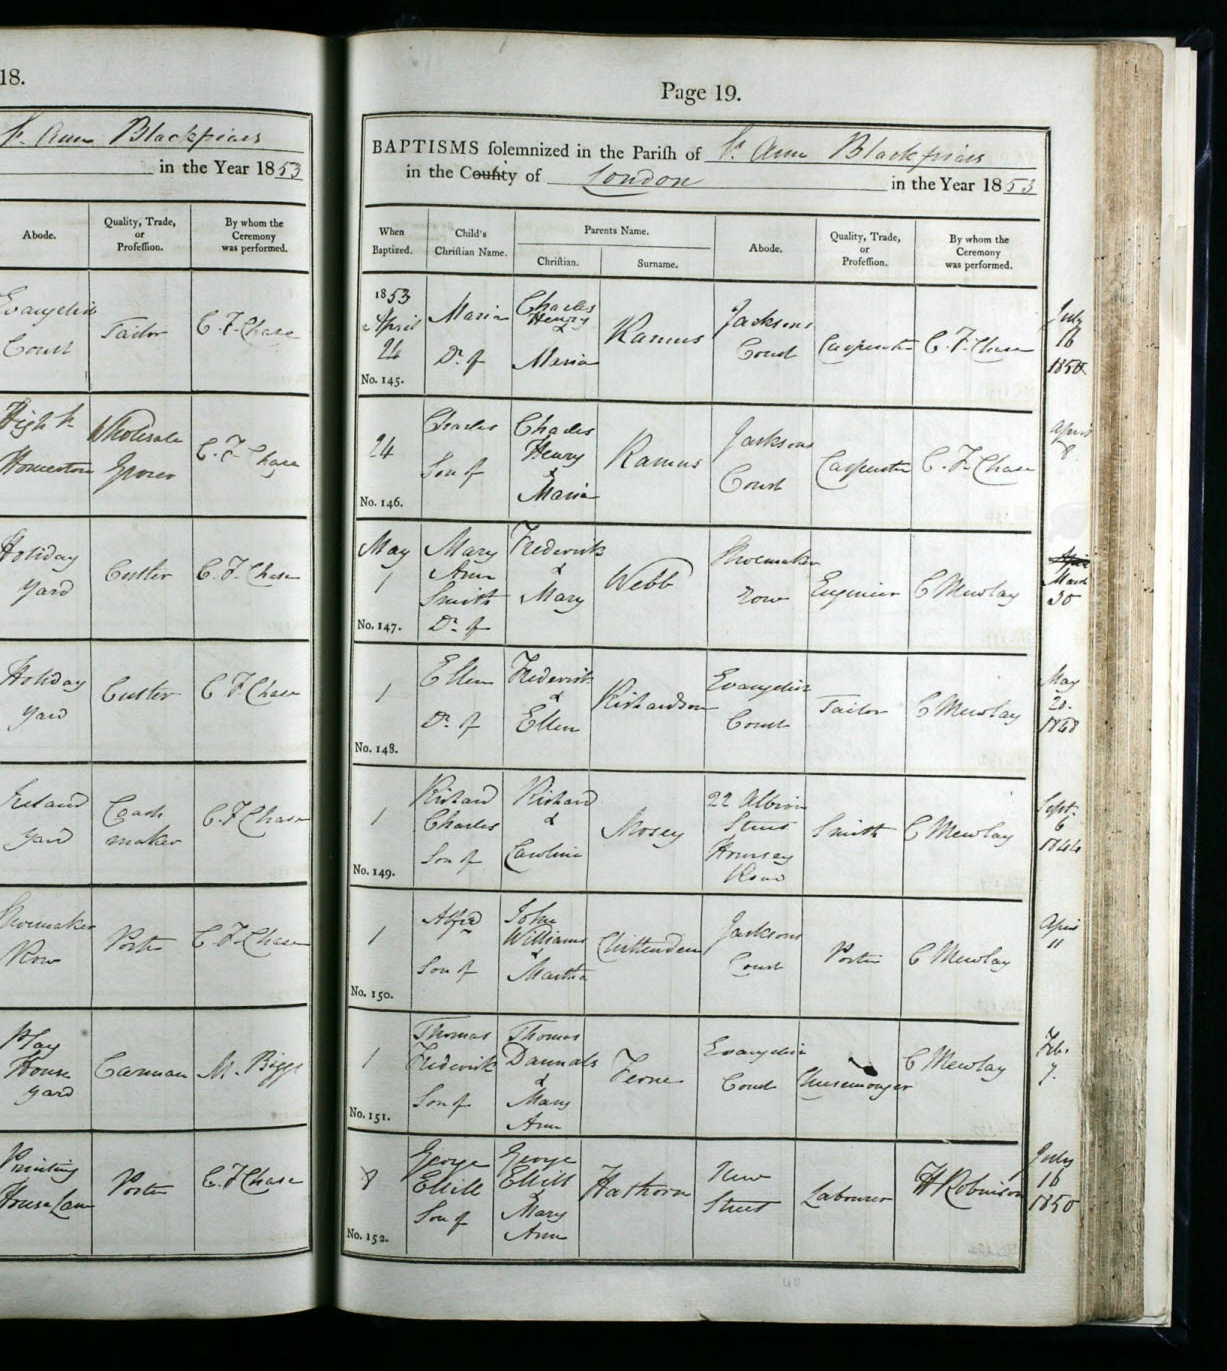 18.
St. Ann Blackfriars
in the Year 1853
Abode.
Quality, Trade,
or
Profeſſion.
By whom the
Ceremony
was performed.
Evangelist
Court
Tailor
C. F. Chase
High St
Homerton
Wholesale
Grocer
C. F. Chase
Holiday
Yard
Cutler
C. F. Chase
Holiday
Yard
Cutler
C F Chase
Ireland
Yard
Coach
maker
C. F Chase
Shoemaker
Row
Porter
C. F. Chase
Play
House
Yard
Carman
M. Biggs
Printing
House Lane
Porter
C. F Chase
Page 19.
BAPTISMS ſolemnized in the Pariſh of St. Ann Blackfriars
in the County of London in the Year 1853
When
Baptized.
Child's
Chriſtian Name.
Parents Name.
Chriſtian.
Surname.
Abode.
Quality, Trade,
or
Profeſſion.
By whom the
Ceremony
was performed.
1853
April
24
No. 145.
Maria
Dr. of
Charles
Henry
&
Maria
Ramus
Jacksons
Court
Carpenter
C. F. Chase
July
16
1850
24
No. 146.
Charles
Son of
Charles
Henry
&
Maria
Ramus
Jacksons
Court
Carpenter
C. F. Chase
April
8
May
1
No. 147.
Mary
Ann
Smith
Dr. of
Frederick
&
Mary
Webb
Shoemaker
row
Engineer
C Mewlay
March
30
1
No. 148.
Ellen
Dr. of
Frederick
&
Ellen
Richardson
Evangelist
Court
Tailor
C Mewlay
May
20.
1848
1
No. 149.
Richard
Charles
Son of
Richard
&
Caroline
Mosey
22 Albion
Street
Hornsey
Road
Smith
C Mewlay
Sept.
6
1844
1
No. 150.
Alfred
Son of
John
William
&
Martha
Chittenden
Jacksons
Court
Porter
C Mewlay
April
11
1
No. 151.
Thomas
Frederick
Son of
Thomas
&
Mary
Ann
Ferne
Evangelist
Court
Cheesemonger
C Mewlay
Feb.
7.
8
No. 152.
George
Son of
George
&
Mary
Ann
Hathorn
New
Street
Labourer
H Robinson
July
16
1850